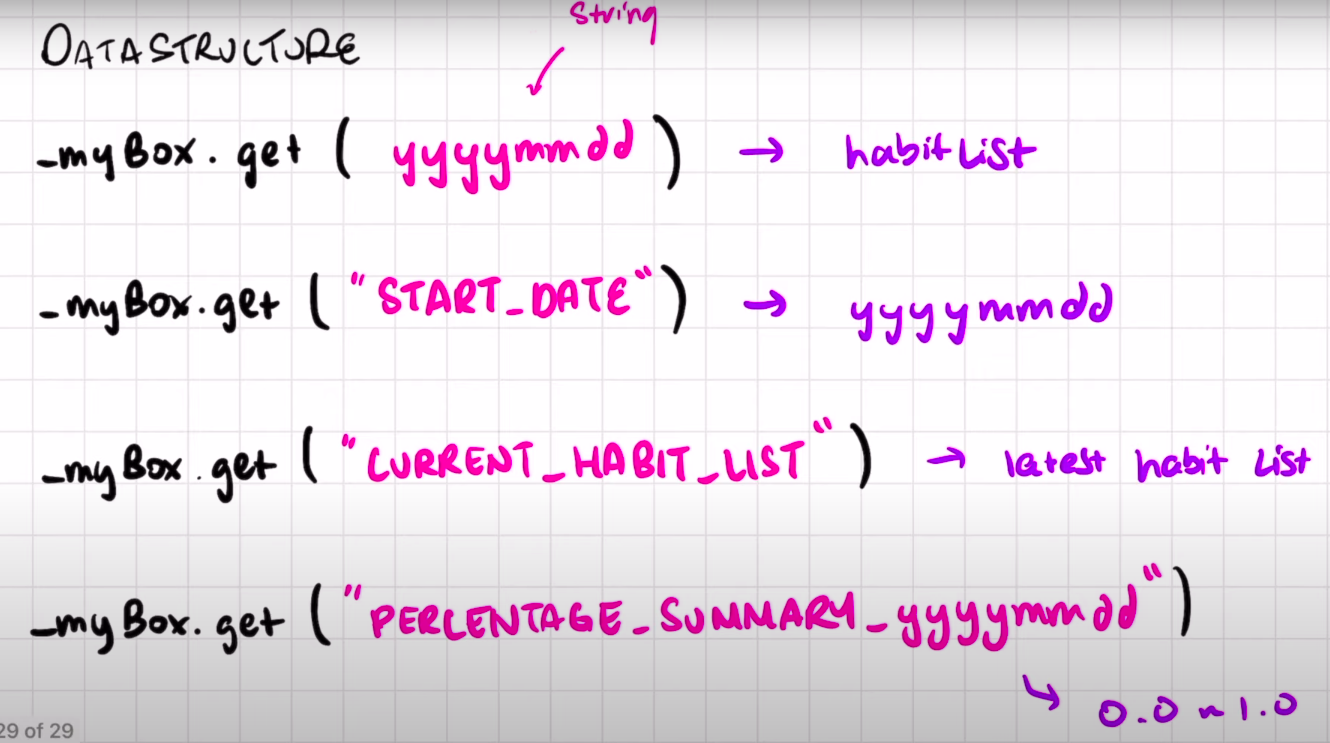 String
DATASTRUCTURE
_myBox.get ( yyyymmdd ) → habitList
_myBox.get ( "START_DATE" ) → yyyymmdd
_myBox.get ( "CURRENT_HABIT_LIST" ) → latest habit list
_myBox.get ( "PERCENTAGE_SUMMARY_yyyymmdd" )
↳ 0.0 ~ 1.0
29 of 29